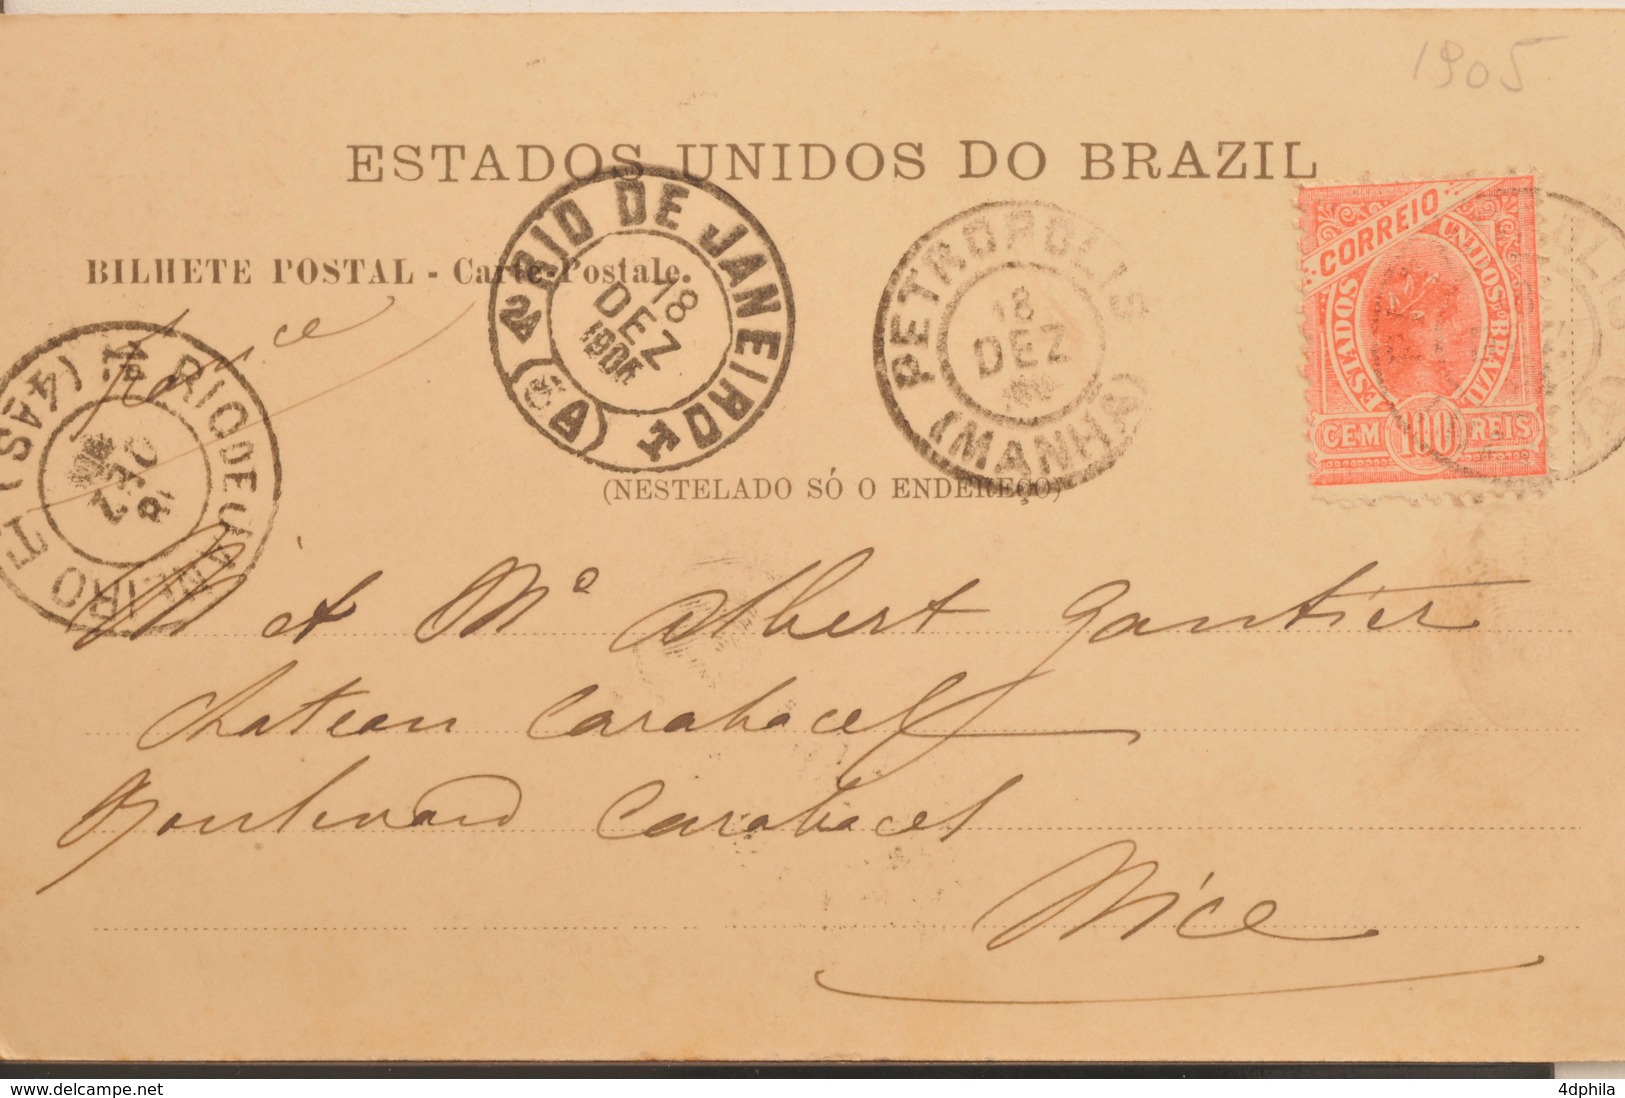 1905
ESTADOS UNIDOS DO BRAZIL
BILHETE POSTAL - Carte-Postale.
france
RIO DE JANEIRO
2ª (6A)
18
DEZ
1905
PETROPOLIS
18
DEZ
(MANHÃ)
CORREIO
ESTADOS UNIDOS DO BRAZIL
CEM 100 REIS
RIO DE JANEIRO
(4ª S)
18
DEZ
(NESTE LADO SÓ O ENDEREÇO)
M et Me Albert Gautier
Chateau Carabacel
Boulevard Carabacel
Nice
delcampe.net
4dphila